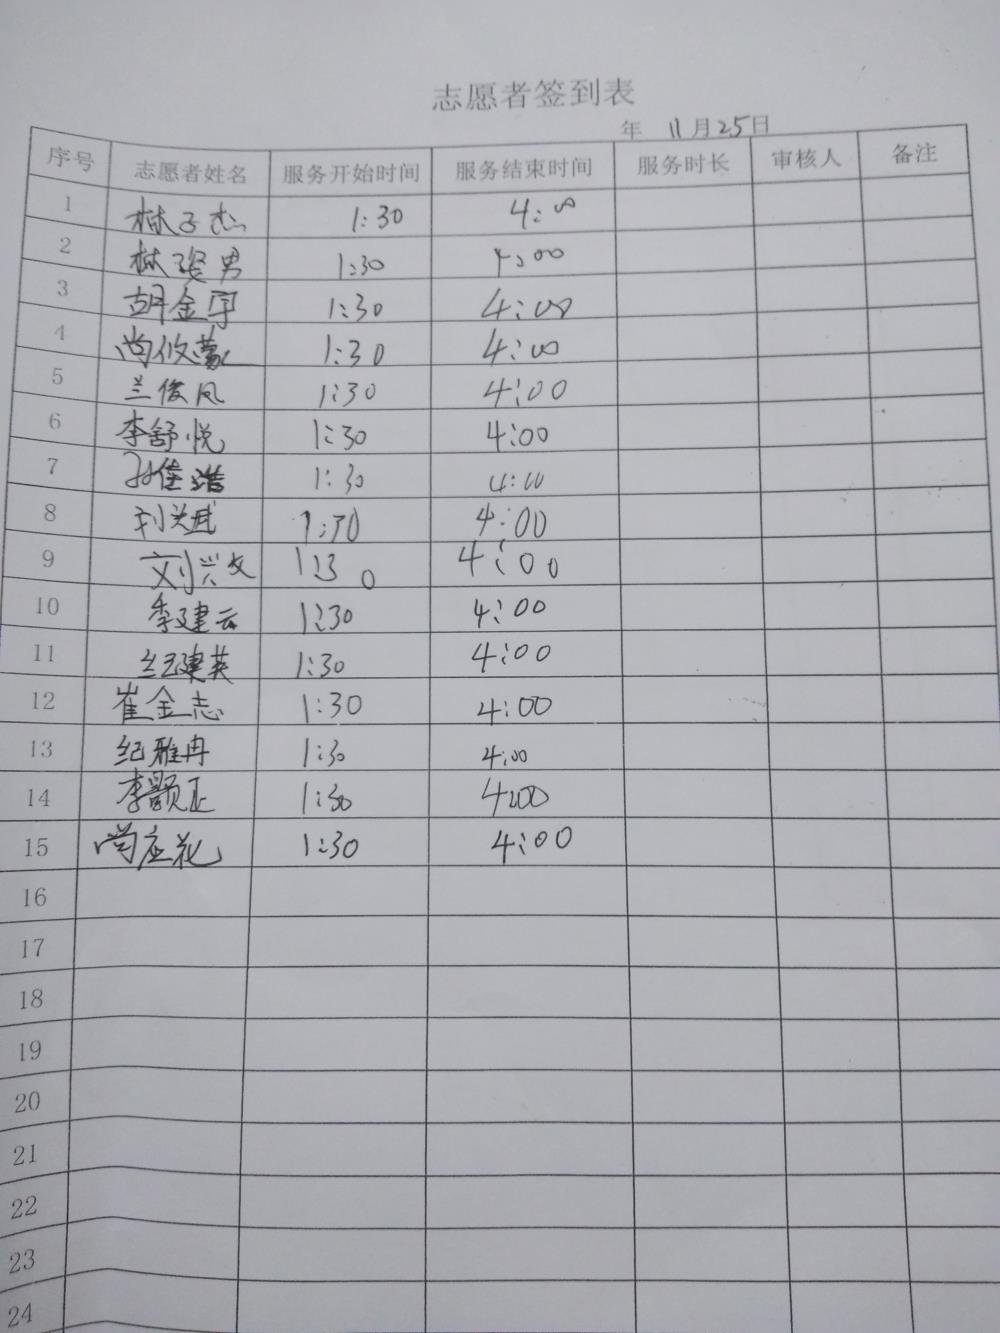 志愿者签到表
年 11月25日
序号 志愿者姓名 服务开始时间 服务结束时间 服务时长 审核人 备注
1 林子杰 1:30 4:00
2 林强男 1:30 4:00
3 胡金宇 1:30 4:00
4 尚攸蒙 1:30 4:00
5 兰俊凤 1:30 4:00
6 李舒悦 1:30 4:00
7 孙佳浩 1:30 4:00
8 刘兴斌 1:30 4:00
9 刘兴文 1:30 4:00
10 季建云 1:30 4:00
11 纪建英 1:30 4:00
12 崔金志 1:30 4:00
13 纪雅冉 1:30 4:00
14 李颢正 1:30 4:00
15 尚应花 1:30 4:00
16
17
18
19
20
21
22
23
24